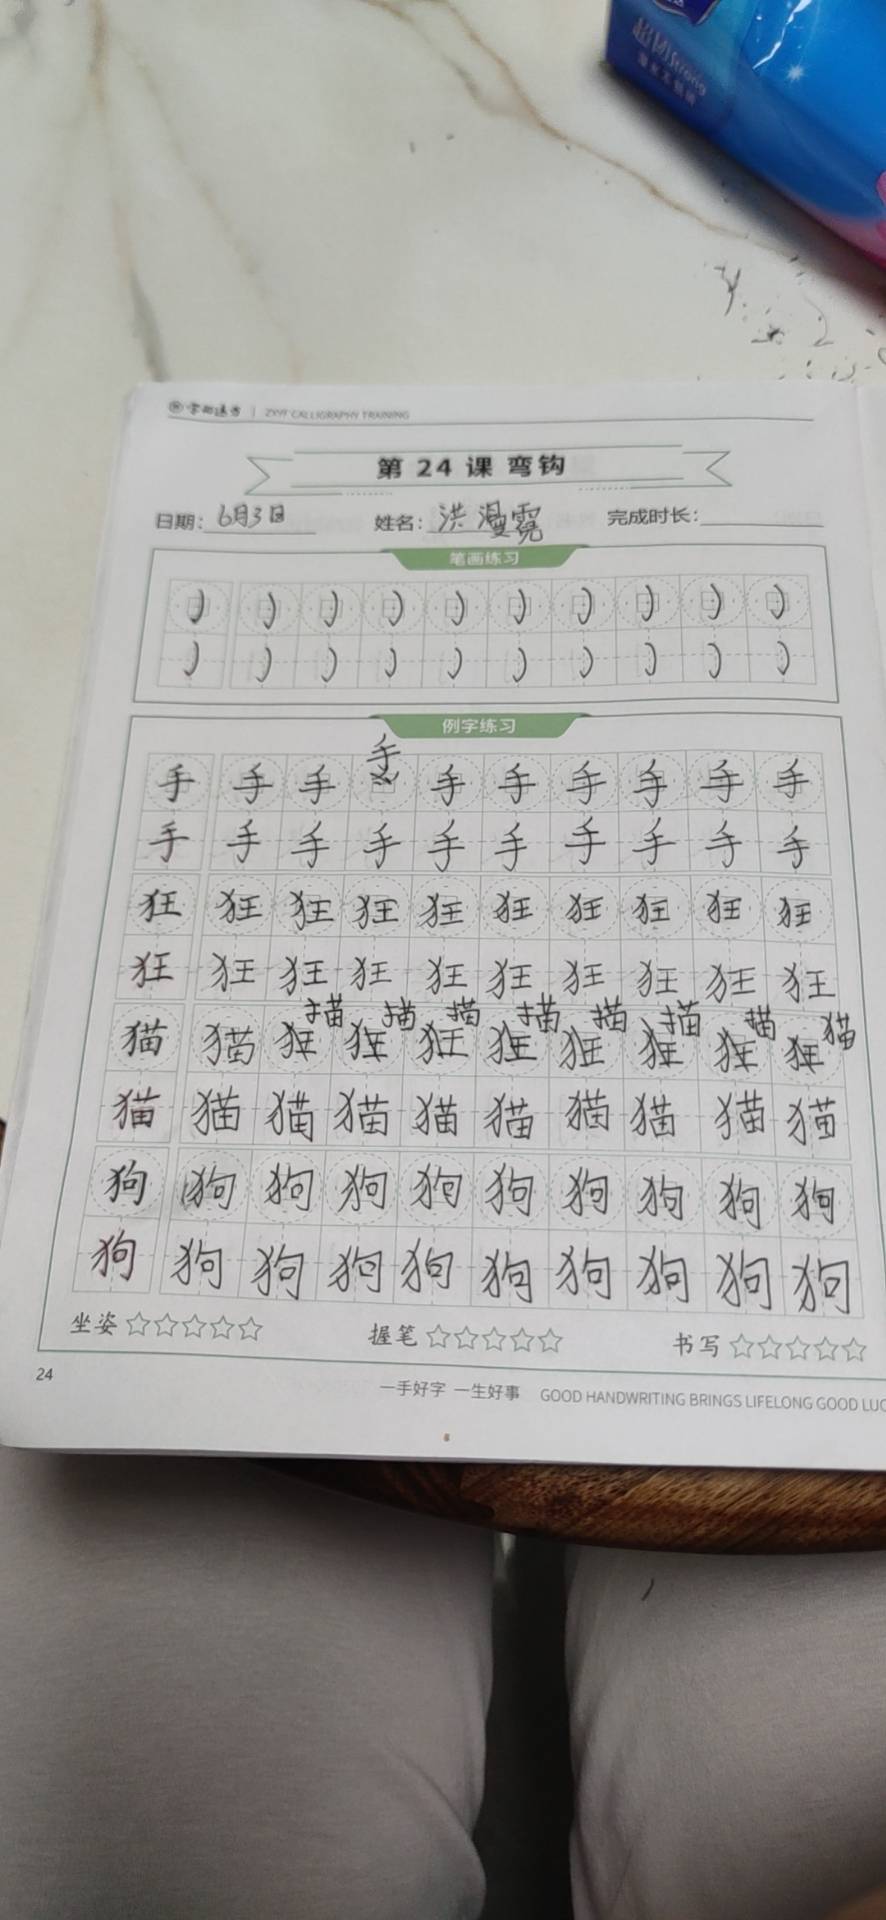 超韧Strong
字如遇方 | ZXYF CALLIGRAPHY TRAINING
第 24 课 弯钩
日期: 6月3日 姓名: 洪漫霓 完成时长:
笔画练习
例字练习
手
手 手 手 手 手 手 手 手 手
手 手 手 手 手 手 手 手 手 手
狂 狂 狂 狂 狂 狂 狂 狂 狂 狂
狂 狂 狂 狂 狂 狂 狂 狂 狂 狂
描 描 描 描 描 描 描 猫
猫 猫 狂 狂 狂 狂 狂 狂 狂 狂
猫 猫 猫 猫 猫 猫 猫 猫 猫 猫
狗 狗 狗 狗 狗 狗 狗 狗 狗 狗
狗 狗 狗 狗 狗 狗 狗 狗 狗 狗
坐姿☆☆☆☆☆ 握笔☆☆☆☆☆ 书写☆☆☆☆☆
24
一手好字 一生好事 GOOD HANDWRITING BRINGS LIFELONG GOOD LUC